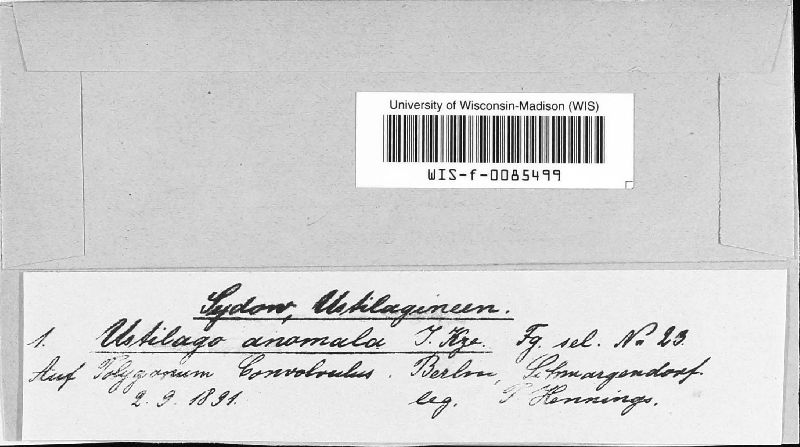 University of Wisconsin-Madison (WIS)
WIS-f-0085499
Sydow, Ustilagineen.
1. Ustilago anomala J. Kze. Fg. sel. No 23.
Auf Polygonum Convolvulus. Berlin, Schmargendorf.
2. 9. 1891. leg. P. Hennings.